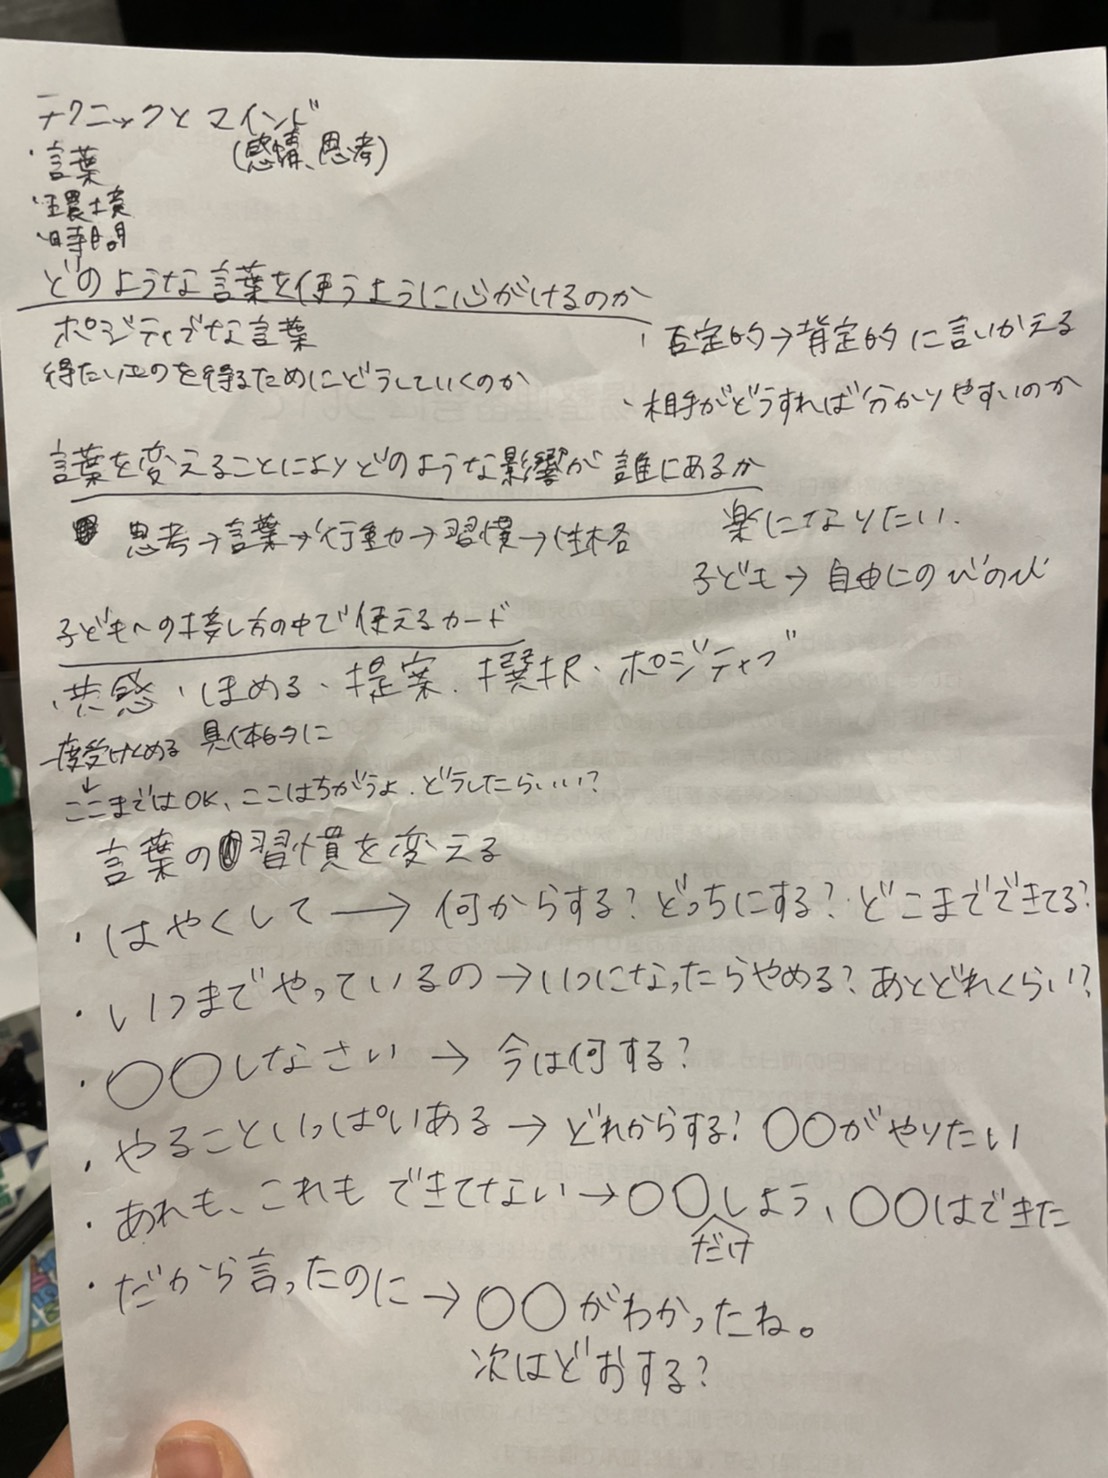 テクニックとマインド
・言葉
(感情、思考)
・環境
・時間
どのような言葉を使うように心がけるのか
ポジティブな言葉
・否定的→肯定的に言いかえる
得たいものを得るためにどうしていくのか
・相手がどうすれば分かりやすいのか
言葉を変えることによりどのような影響が誰にあるか
思考→言葉→行動→習慣→性格
楽になりたい.
子ども→自由にのびのび
子どもへの接し方の中で使えるカード
・共感・ほめる・提案・選択・ポジティブ
一度受けとめる 具体的に
↓
ここまではOK、ここはちがうよ.どうしたらいい?
言葉の習慣を変える
・はやくして→何からする?どっちにする?どこまでできてる?
・いつまでやっているの→いつになったらやめる?あとどれくらい?
・○○しなさい→今は何する?
・やることいっぱいある→どれからする?○○がやりたい
・あれも、これもできてない→○○しよう、○○はできた
だけ
・だから言ったのに→○○がわかったね。
次はどおする?